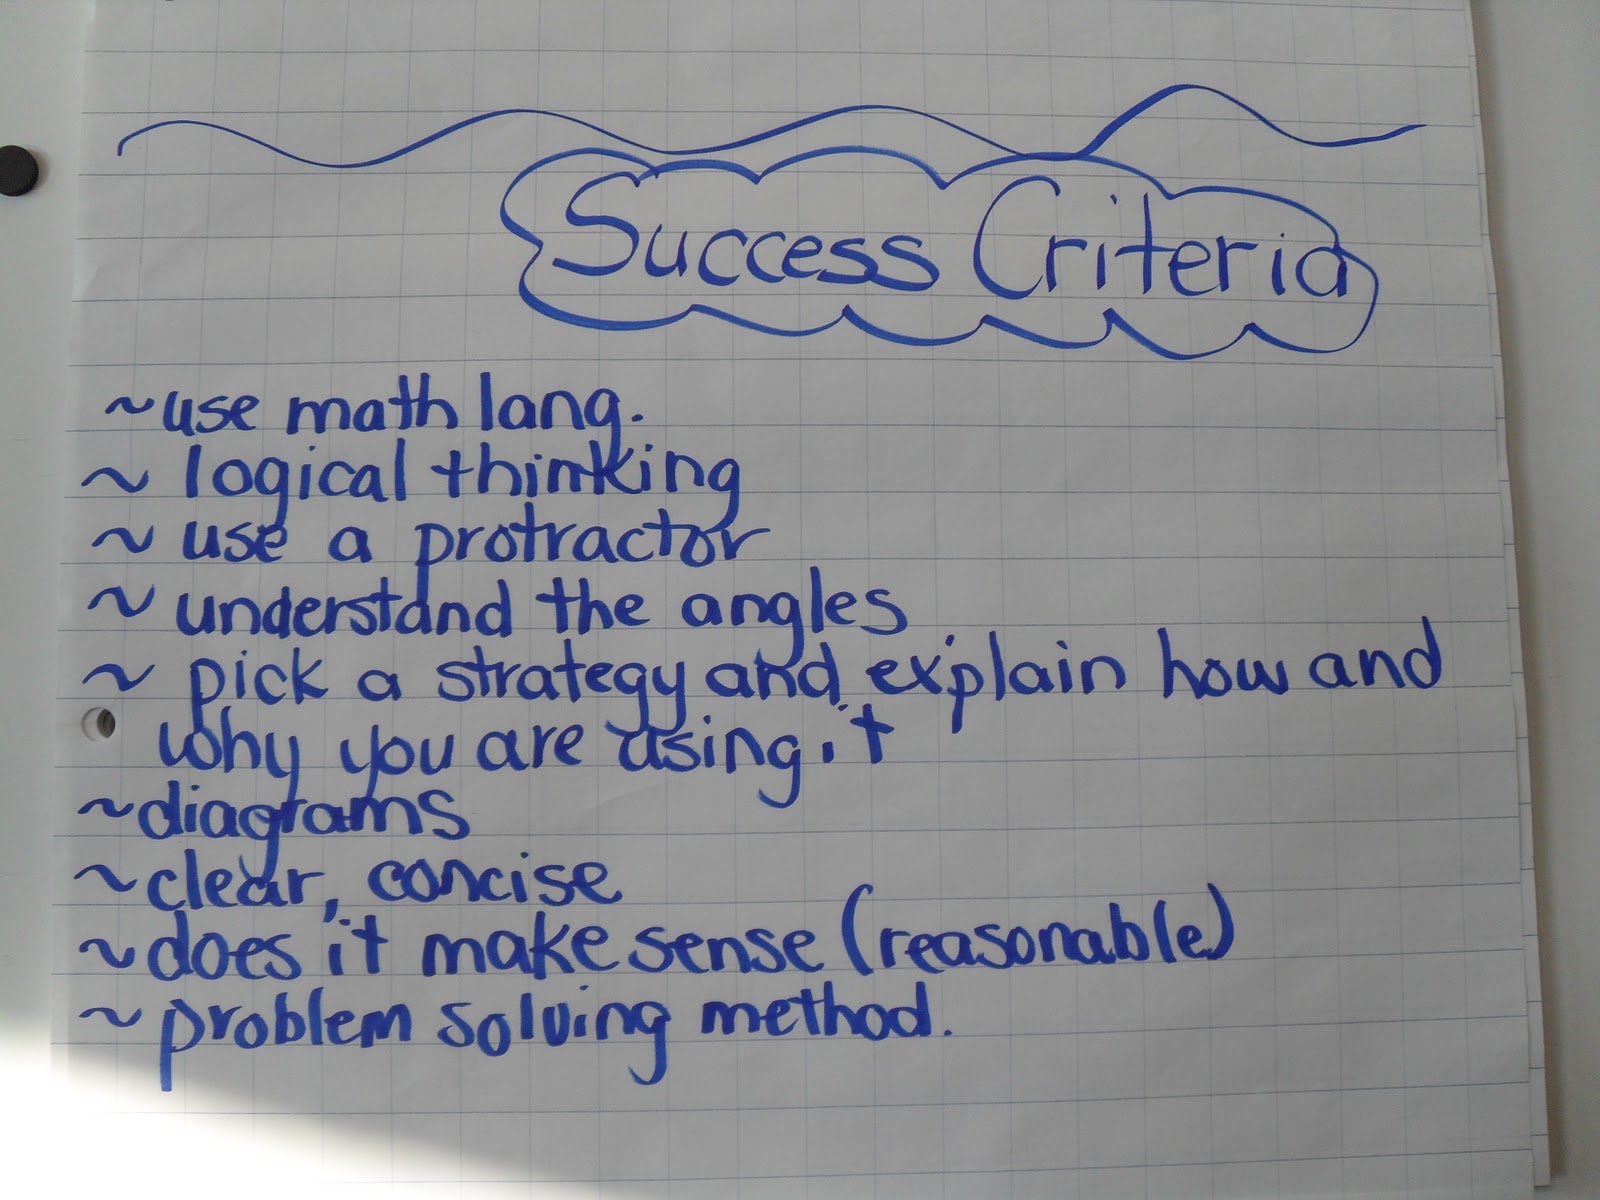 Success Criteria
~use math lang.
~ logical thinking
~ use a protractor
~ understand the angles
~ pick a strategy and explain how and
why you are using it
~diagrams
~clear, concise
~does it make sense (reasonable)
~problem solving method.